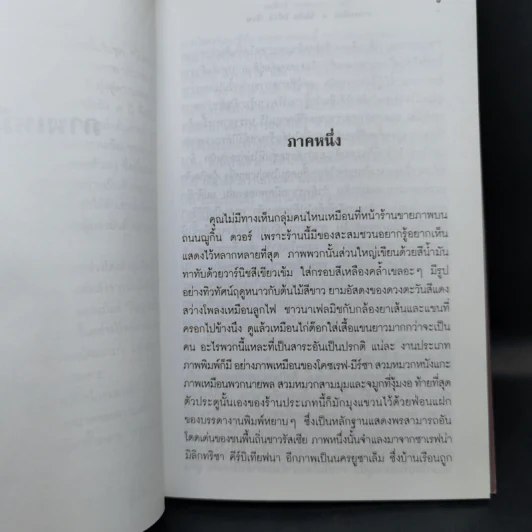 ภาคหนึ่ง
คุณไม่มีทางเห็นกลุ่มคนไหนเหมือนที่หน้าร้านขายภาพบน
ถนนญูกิ้น ดวอร์ เพราะร้านนี้มีของสะสมชวนอยากรู้อยากเห็น
แสดงไว้หลากหลายที่สุด ภาพพวกนั้นส่วนใหญ่เขียนด้วยสีน้ำมัน
ทาทับด้วยวาร์นิชสีเขียวเข้ม ใส่กรอบสีเหลืองคล้ำเขลอะๆ มีรูป
อย่างทิวทัศน์ฤดูหนาวกับต้นไม้สีขาว ยามอัสดงของดวงตะวันสีแดง
สว่างโพลงเหมือนลูกไฟ ชาวนาเฟลมิชกับกล้องยาเส้นและแขนที่
ครอกไปข้างนึง ดูแล้วเหมือนไก่ต๊อกใส่เสื้อแขนยาวมากกว่าจะเป็น
คน อะไรพวกนี้แหละที่เป็นสาระอันเป็นปรกติ แน่ละ งานประเภท
ภาพพิมพ์ก็มี อย่างภาพเหมือนของโคซเรฟ-มีร์ซา สวมหมวกหนังแกะ
ภาพเหมือนพวกนายพล สวมหมวกสามมุมและจมูกที่งุ้มงอ ท้ายที่สุด
ตัวประตูนั้นเองของร้านประเภทนี้ก็มักมุงแขวนไว้ด้วยฟ่อนแผ่ก
ของบรรดางานพิมพ์หยาบๆ ซึ่งเป็นหลักฐานแสดงพรสามารถอัน
โดดเด่นของชนพื้นถิ่นชาวรัสเซีย ภาพหนึ่งนั้นจำแลงมาจากซาเรฟน่า
มิลิกทริซา คีร์บิเทียฟนา อีกภาพเป็นนครยูซาเล็ม ซึ่งบ้านเรือนถูก